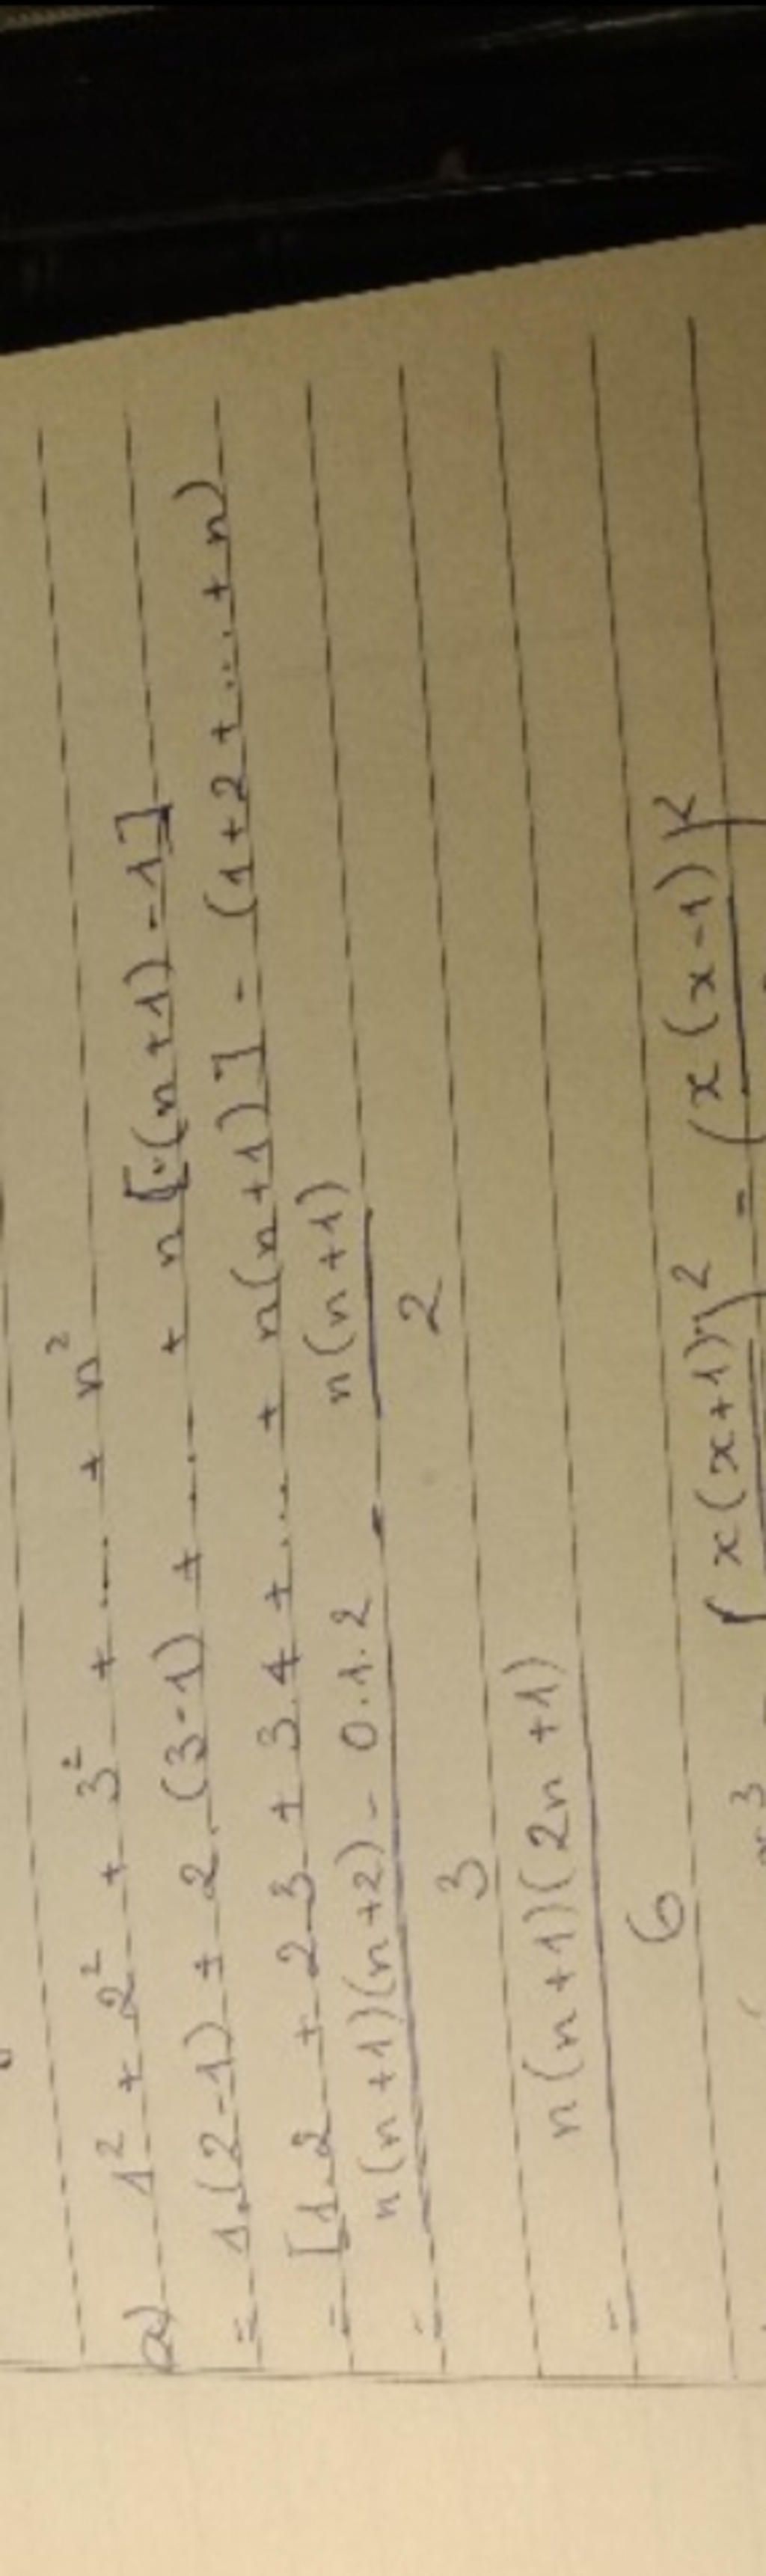 a) 1² + 2² + 3² + .... + n²
= 1.(2-1) + 2.(3-1) + .... + n[(n+1)-1]
= [1.2 + 2.3 + 3.4 + ... + n(n+1)] - (1+2+...+n)
= n(n+1)(n+2) - 0.1.2 / 3 - n(n+1) / 2
= n(n+1)(2n+1) / 6
(x(x+1))² - (x(x-1))²